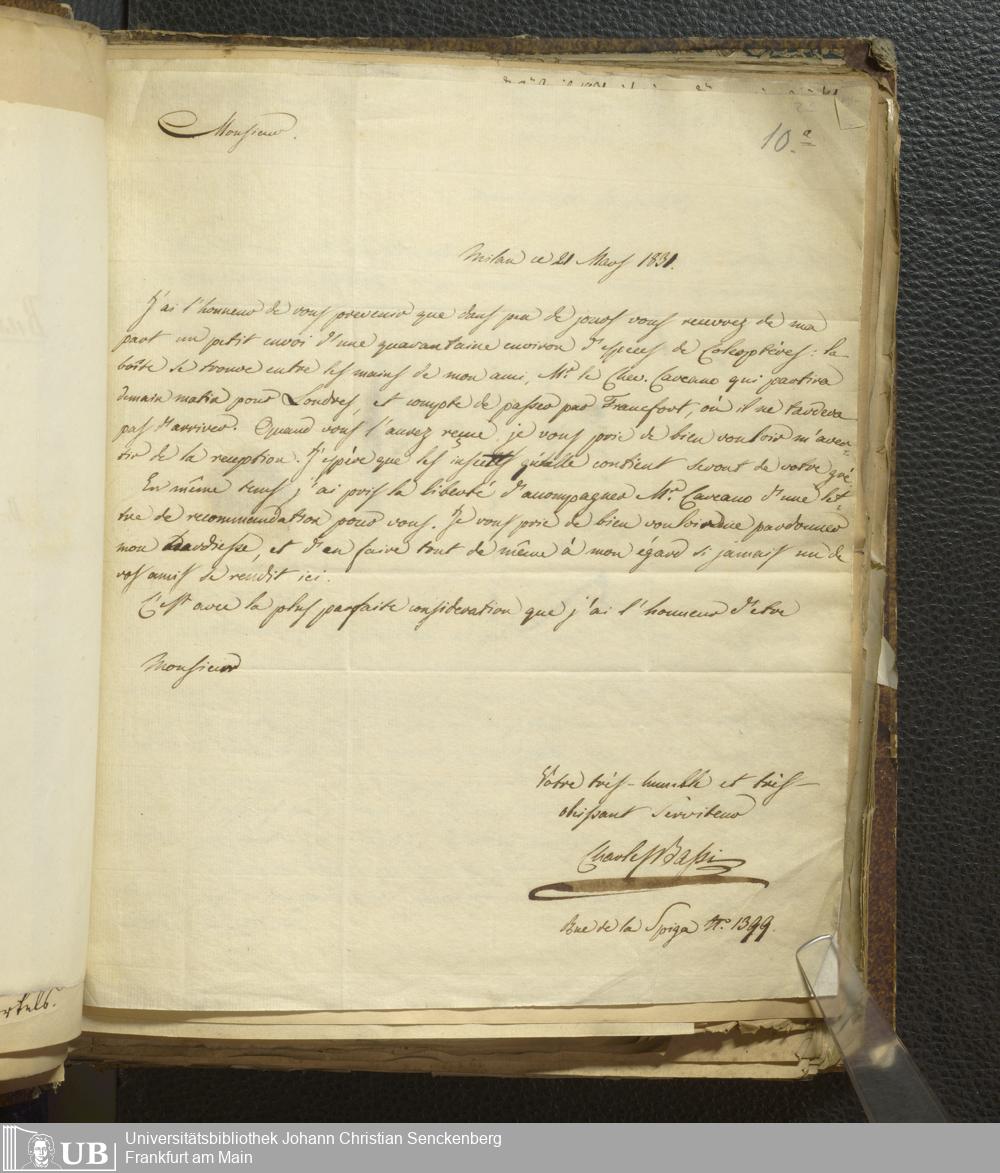 Monsieur.
10.a
Milan ce 21 Mars 1831.
J'ai l'honneur de vous prevenir que dans peu de jours vous recevrez de ma
part un petit envoi d'une quarantaine environ d'especes de Coleoptères: la
boîte se trouve entre les mains de mon ami, Mr. le Chev. Caveano qui partira
demain matin pour Londres, et compte de passer par Francfort, où il ne tardera
pas d'arriver. Quand vous l'aurez reçue je vous prie de bien vouloir m'aver=
tir de la reception. J'espère que les insectes qu'elle contient seront de votre gré.
En même tems j'ai pris la liberté d'accompagner Mr. Caveano d'une let=
tre de recommendation pour vous. Je vous prie de bien vouloir me pardonner
mon hardiesse, et d'en faire tout de même à mon égard si jamais un de
vos amis se rendit ici.
C'est avec la plus parfaite consideration que j'ai l'honneur d'etre
Monsieur
Votre très-humble et très-
obeissant Serviteur
Charles Bassi
Rue de la Spiga No. 1399.
rtels.
UB
Universitätsbibliothek Johann Christian Senckenberg
Frankfurt am Main